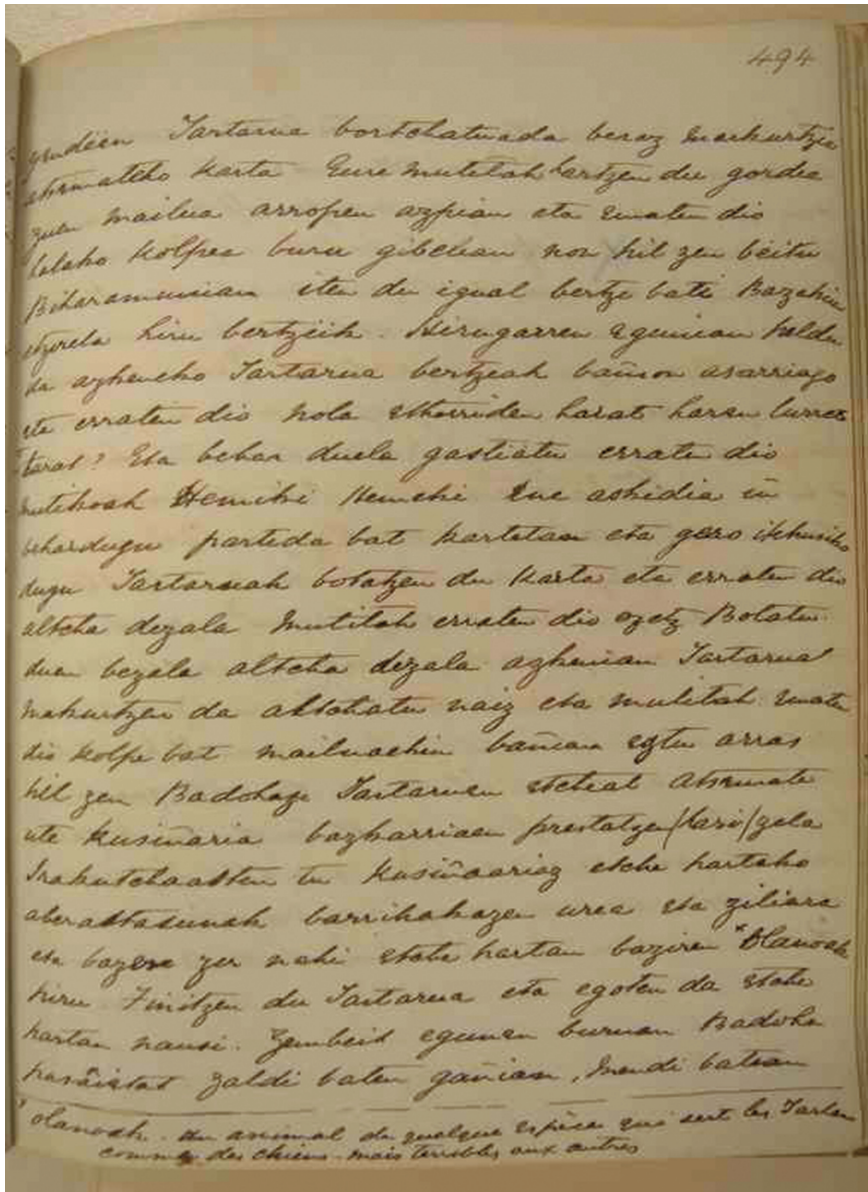 494
Tartarua bortchatuada beraz makurtzia
altchateko karta Gure mutilak hartzen du gordia
zuen mailua arropen azpian eta Ematen dio
kolpea buru gibelian non hil zen beitu
Biharamunian iten du igual bertze bati Bazakien
etzirela hiru bertzeik. Hirugarren Egunian heldu
da azkeneko Tartarua bertzeak bainon asarriago
eta erraten dio nola ethorriden harat haren lurre
tarat? Eta behar duela gastiatu erraten dio
mutikoak Hemiki Hemeki Ene askidia in
behardugu partida bat kartetan eta gero ikhusiko
dugu Tartaruak botatzen du Karta eta erraten dio
altcha dezala Mutilak erraten dio ezetz Botatu
duen bezala altcha dezala azkenian Tartarua
makurtzen da altchatu naiz eta mutilak Ematen
dio kolpe bat mailuachin bainan eztu arras
hil zen Badohaze Tartaruen etcheat
ute kusinaria bazkarriaen prestatzen (hari) zela
Irakutchaasten tu Kusinaariaz etche hartako
aberastasunak barrikakazen urea eta ziliara
eta bazen zer nahi etche hartan baziren * Olanoak
hiru. Finitzen du Tartarua eta egoten da etche
hartan nausi. Zembeit egunen buruan Badoha
zaldi baten gainian, Mendi batean
* olanoak. un animal de quelque espèce qui sert les Tartaru
comme des chiens mais terribles aux autres